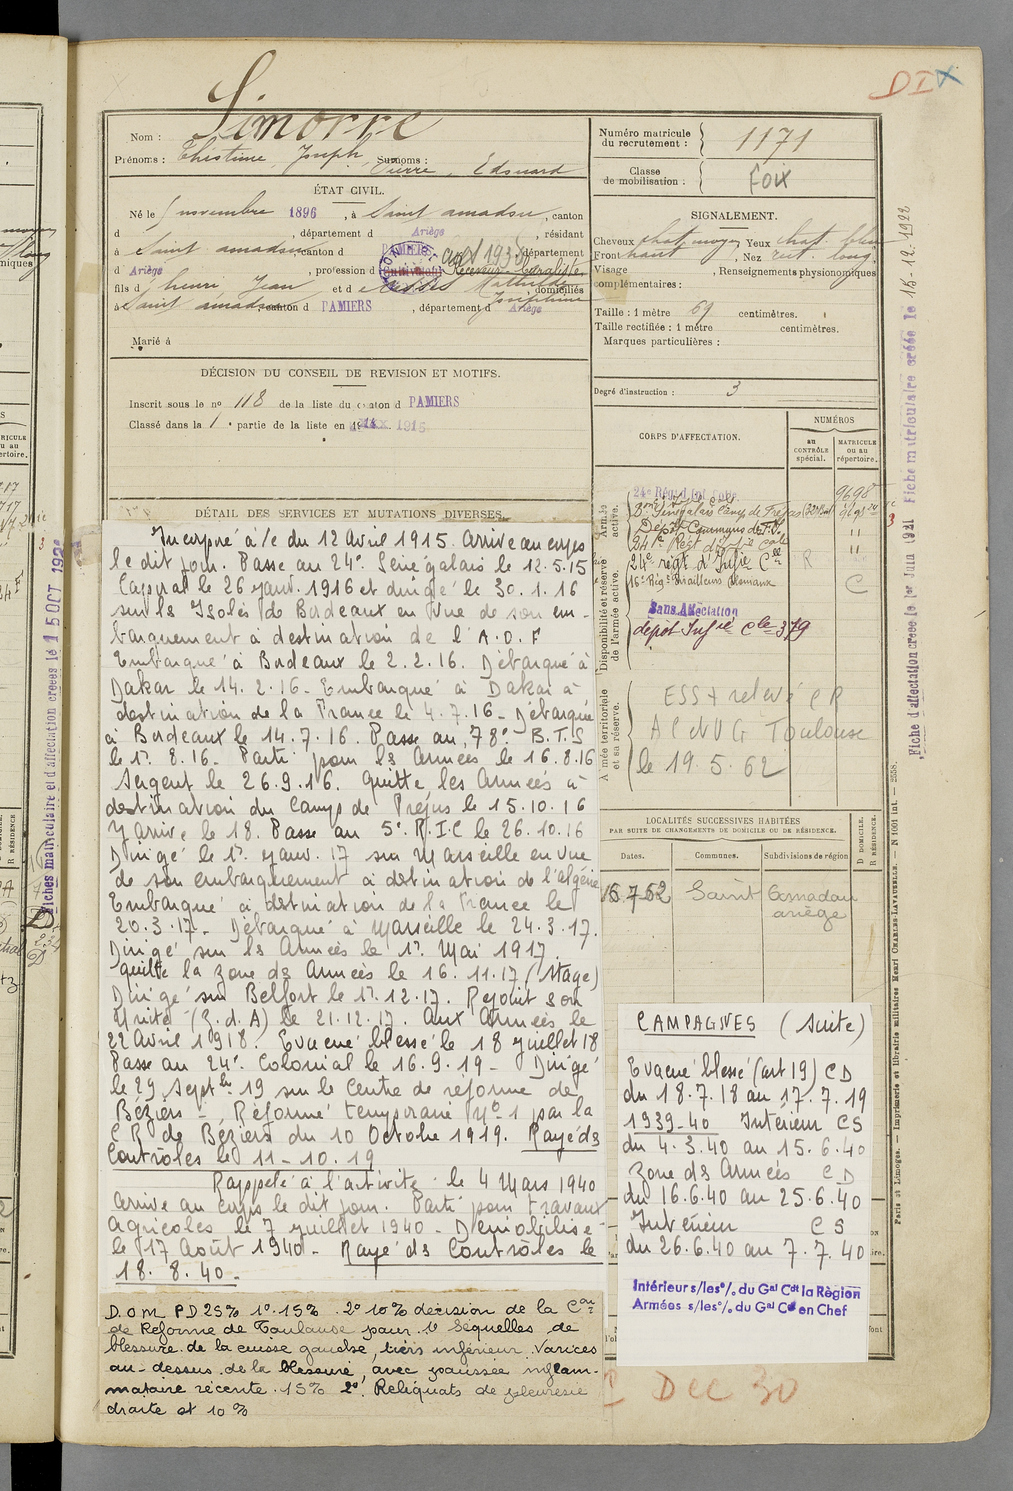 DIX
Nom : Simorre
Prénoms : Thistime Joseph Surnoms : Pierre, Edouard
ÉTAT CIVIL.
Né le novembre 1896, à Saint amadou, canton
d , département d Ariège, résidant
à Saint amadou, canton d PAMIERS, département
d Ariège, profession d Cultivateur
fils d henri Jean et d Mathilde Joséphine domiciliés
à Saint amadou, canton d PAMIERS, département d Ariège
Marié à
DÉCISION DU CONSEIL DE REVISION ET MOTIFS.
Inscrit sous le no 118 de la liste du canton d PAMIERS
Classé dans la 1 partie de la liste en 1915
Numéro matricule du recrutement : 1171
Classe de mobilisation : Foix
SIGNALEMENT.
Cheveux chat. moyen Yeux chat.
Front haut, Nez rect. long
Visage , Renseignements physionomiques
complémentaires :
Taille : 1 mètre 69 centimètres.
Taille rectifiée : 1 mètre centimètres.
Marques particulières :
Degré d'instruction : 3
CORPS D'AFFECTATION.
NUMÉROS
au CONTRÔLE spécial.
MATRICULE ou au répertoire.
Armée active.
24e Régt d'Inf. Colle 9698
Disponibilité et réserve de l'armée active.
24e régt d'Infie Clle R
16e Régt Tirailleurs
C
Sans Affectation
dépôt Infie Cle 379
Armée territoriale et sa réserve.
ESS + relevé CR
ACNVG Toulouse
le 19.5.62
LOCALITÉS SUCCESSIVES HABITÉES
PAR SUITE DE CHANGEMENTS DE DOMICILE OU DE RÉSIDENCE.
Dates. Communes. Subdivisions de région D DOMICILE. R RÉSIDENCE.
15 7 62 Saint Amadou
ariège
DÉTAIL DES SERVICES ET MUTATIONS DIVERSES.
Incorporé à/c du 12 Avril 1915. Arrive au corps
le dit jour. Passe au 24e Sénégalais le 12.5.15
Caporal le 26 janv. 1916 et dirigé le 30.1.16
sur ls Isolés de Bordeaux en vue de son em-
barquement à destination de l'A.O.F
Embarqué à Bordeaux le 2.2.16. Débarqué à
Dakar le 14.2.16 - Embarqué à Dakar à
destination de la France le 4.7.16 - Débarqué
à Bordeaux le 14.7.16. Passe au 78e B.T.S
le 1er.8.16. Parti pour ls Armées le 16.8.16
Sergent le 26.9.16. Quitte les Armées à
destination du Camp de Fréjus le 15.10.16
Y arrive le 18. Passe au 5e R.I.C le 26.10.16
Dirigé le 1er janv. 17 sur Marseille en vue
de son embarquement à destination de l'algérie
Embarqué à destination de la France le
20.3.17 - Débarqué à Marseille le 24.3.17.
Dirigé sur ls Armées le 1er Mai 1917.
quitte la zone ds Armées le 16.11.17 (stage)
Dirigé sur Belfort le 1er.12.17. Rejoint son
Unité (Z.d.A) le 21.12.17. Aux Armées le
22 Avril 1918. Evacué blessé le 18 juillet 18
Passe au 24e Colonial le 16.9.19 - Dirigé
le 29 Septbre 19 sur le Centre de réforme de
Béziers - Réformé temporaire No 1 par la
C R de Béziers du 10 Octobre 1919. Rayé ds
Contrôles le 11-10.19
Rappelé à l'activité le 4 Mars 1940
Arrive au corps le dit jour. Parti pour travaux
agricoles le 7 juillet 1940 - Démobilisé
le 17 Août 1940 - Rayé ds Contrôles le
18.8.40.
D.O.M PD 25% 1o 15% 2o 10% décision de la Con
de Réforme de Toulouse pour 1o Séquelles de
blessure de la cuisse gauche, tiers inférieur. Varices
au-dessus de la blessure, avec poussée inflam-
matoire récente. 15% 2o Reliquats de pleurésie
droite at 10%
CAMPAGNES (suite)
Evacué blessé (art 19) CD
du 18.7.18 au 17.7.19
1939-40 Intérieur CS
du 4.3.40 au 15.6.40
Zone ds Armées CD
du 16.6.40 au 25.6.40
Intérieur CS
du 26.6.40 au 7.7.40
Intérieur s/les o/. du Gal Cdt la Région
Armées s/les o/. du Gal Cdt en Chef
DEC 30
Fiche d'affectation créée le 1er Juin 1921 Fiche matriculaire créée le 15-12-1922
Paris et Limoges. — Imprimerie et librairie militaires Henri CHARLES-LAVAUZELLE. — N 1001 int. — 2558.
Fiches matriculaire et d'affectation créées le 15 OCT 192